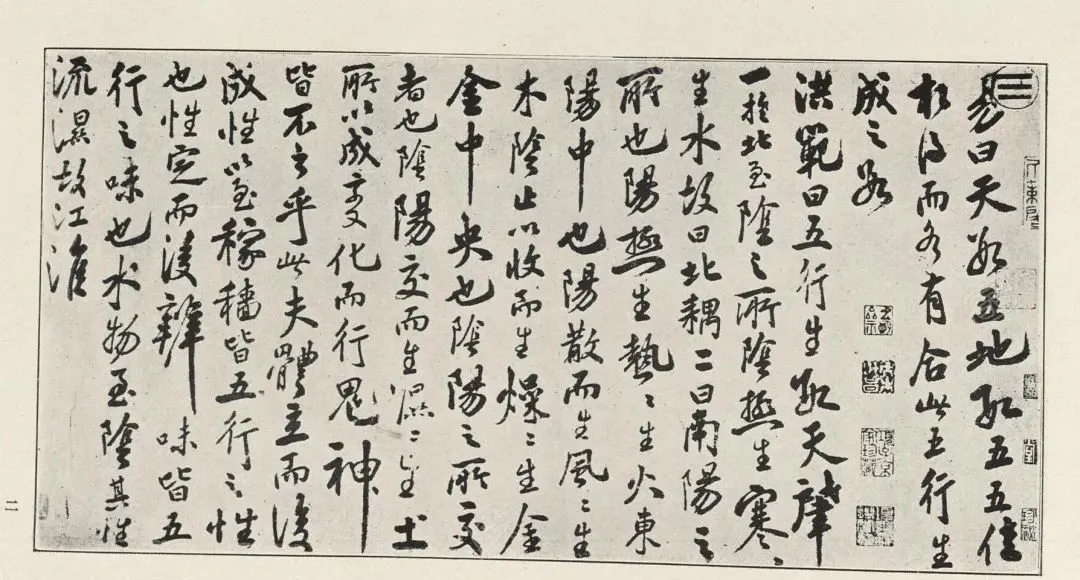 易曰天數五地數五五位
相得而各有合此五行生
成之數
洪範曰五行生數天肇
一於北至陰之所陰極生寒〻
生水故曰北耦二曰南陽之
所也陽極生熱〻生火東
陽中也陽散而生風〻生
木陰止以收而生燥〻生金
金中央也陰陽之所交
者也陰陽交而生濕〻生土
所以成變化而行鬼神
皆不言乎此夫體立而後
成性以至稼穡皆五行之性
也性定而後辨味皆五
行之味也水物至陰其性
流濕故江淮
二